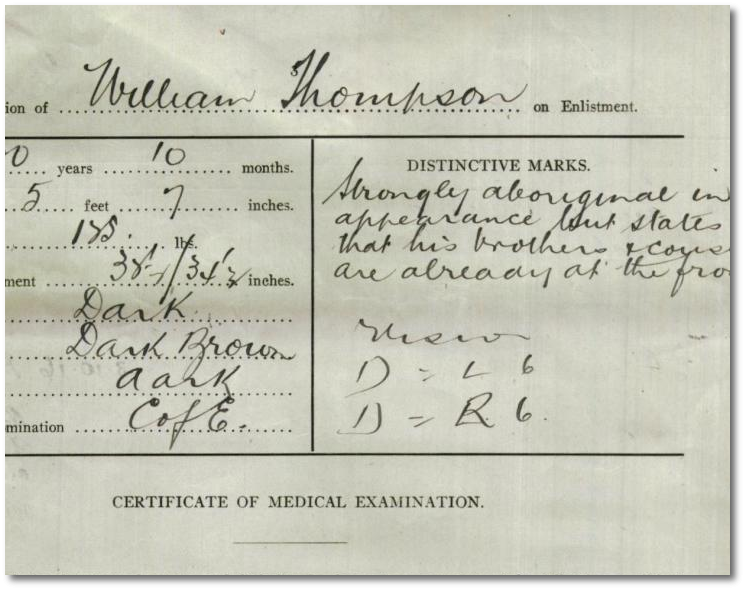 ion of William Thompson on Enlistment.
0 years 10 months.
5 feet 7 inches.
185. lbs.
ment 38½/34½ inches.
Dark
Dark Brown
dark
mination C of E.
DISTINCTIVE MARKS.
Strongly aboriginal in
appearance but states
that his brothers & cous
are already at the fro
Vision
D = L 6
D = R 6.
CERTIFICATE OF MEDICAL EXAMINATION.